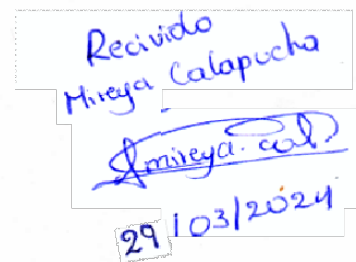 Recivido
Mireya Calapucha
mireya. cal.
29/03/2024